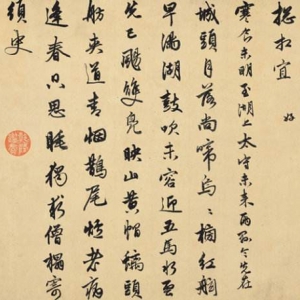 揔相宜 好
寒食未明至湖上太守未来两縣令先在
城頭月落尚啼烏〻榜紅舷
早滿湖鼓吹未容迎五馬水雲
先已颺雙鳧映山黄帽螭頭
舫夾道青烟鵲尾爐老病
逢春只思睡獨求僧榻寄
須臾